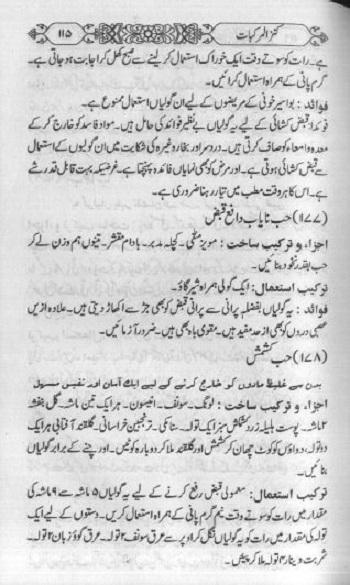 کنز المرکبات
۱۱۵
ہے۔ رات کو سوتے وقت ایک خوراک استعمال کر لینے سے صبح کھل کر اجابت ہو جاتی ہے۔
گرم پانی کے ہمراہ استعمال کرائیں۔
فوائد: بواسیر خونی کے مریضوں کے لیے ان گولیاں استعمال ممنوع ہے۔
فوائد قبض کشائی کے لیے یہ گولیاں بے نظیر فوائد کی حامل ہیں۔ مواد فاسد کو خارج کر کے
معدہ و امعاء کو صاف کرتی ہیں۔ درد سر اور بخار وغیرہ کی شکایت میں ان گولیوں کے استعمال
سے قبض کشائی ہوتی ہے۔ اور مرض کو بھی نمایاں فائدہ پہنچتا ہے۔ غرضیکہ بہت قابل قدر شے
ہے۔ اس کا ہر وقت مطب میں تیار رہنا ضروری ہے۔
(۱۷۷) حب نایاب دافع قبض
اجزاء و ترکیب ساخت: مویز منقیٰ۔ کچلہ مدبر۔ بادام مقشر۔ تینوں ہم وزن لے کر
حب بقدر نخود بنائیں۔
ترکیب استعمال: ایک گولی ہمراہ شیر گاؤ۔
فوائد: یہ گولیاں بفضلہ پرانی سے پرانی قبض کو بھی جڑ سے اکھاڑ دیتی ہیں۔ علاوہ ازیں
عصبی دردوں کو بھی از حد مفید ہیں۔ مقوی باہ بھی ہیں۔ ضرور آزمائیں۔
(۱۷۸) حب کشمش
بدن سے غلیظ مادوں کو خارج کرنے کے لیے ایک آسان اور نفیس مسہل
اجزاء و ترکیب ساخت: لونگ۔ سونف۔ انیسون۔ ہر ایک تین ماشہ۔ گل بنفشہ
۲ ماشہ۔ پوست ہلیلہ زرد کشمش سبز ایک تولہ۔ سناکی۔ ترنجبین خراسانی۔ گلقند آفتابی ہر ایک
دو تولہ۔ دواؤں کو کوٹ چھان کر کشمش اور گلقند ملا کر دوبارہ کوٹیں۔ اور چنے کے برابر گولیاں
بنائیں۔
ترکیب استعمال: معمولی قبض رفع کرنے کے لیے یہ گولیاں ۵ ماشہ سے ۹ ماشہ کی
مقدار میں رات کو سوتے وقت نیم گرم پانی کے ہمراہ استعمال کریں۔ دستوں کے لیے ایک
تولہ کی مقدار میں رات کو یہ گولیاں نگل کر اوپر سے عرق سونف ۷ تولہ۔ عرق گاؤزبان ۷ تولہ۔
شربت دینار ۴ تولہ ملا کر پیش۔